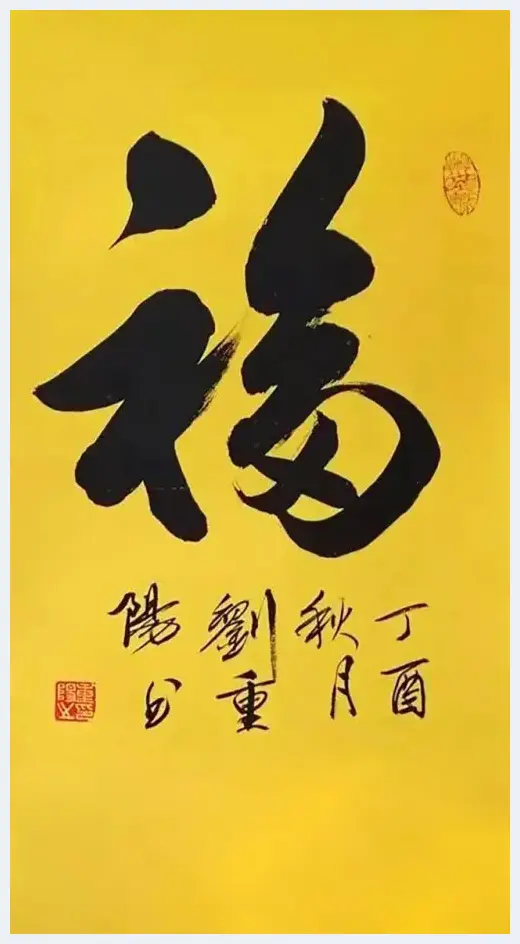 福
丁酉
秋月
劉重
陽书